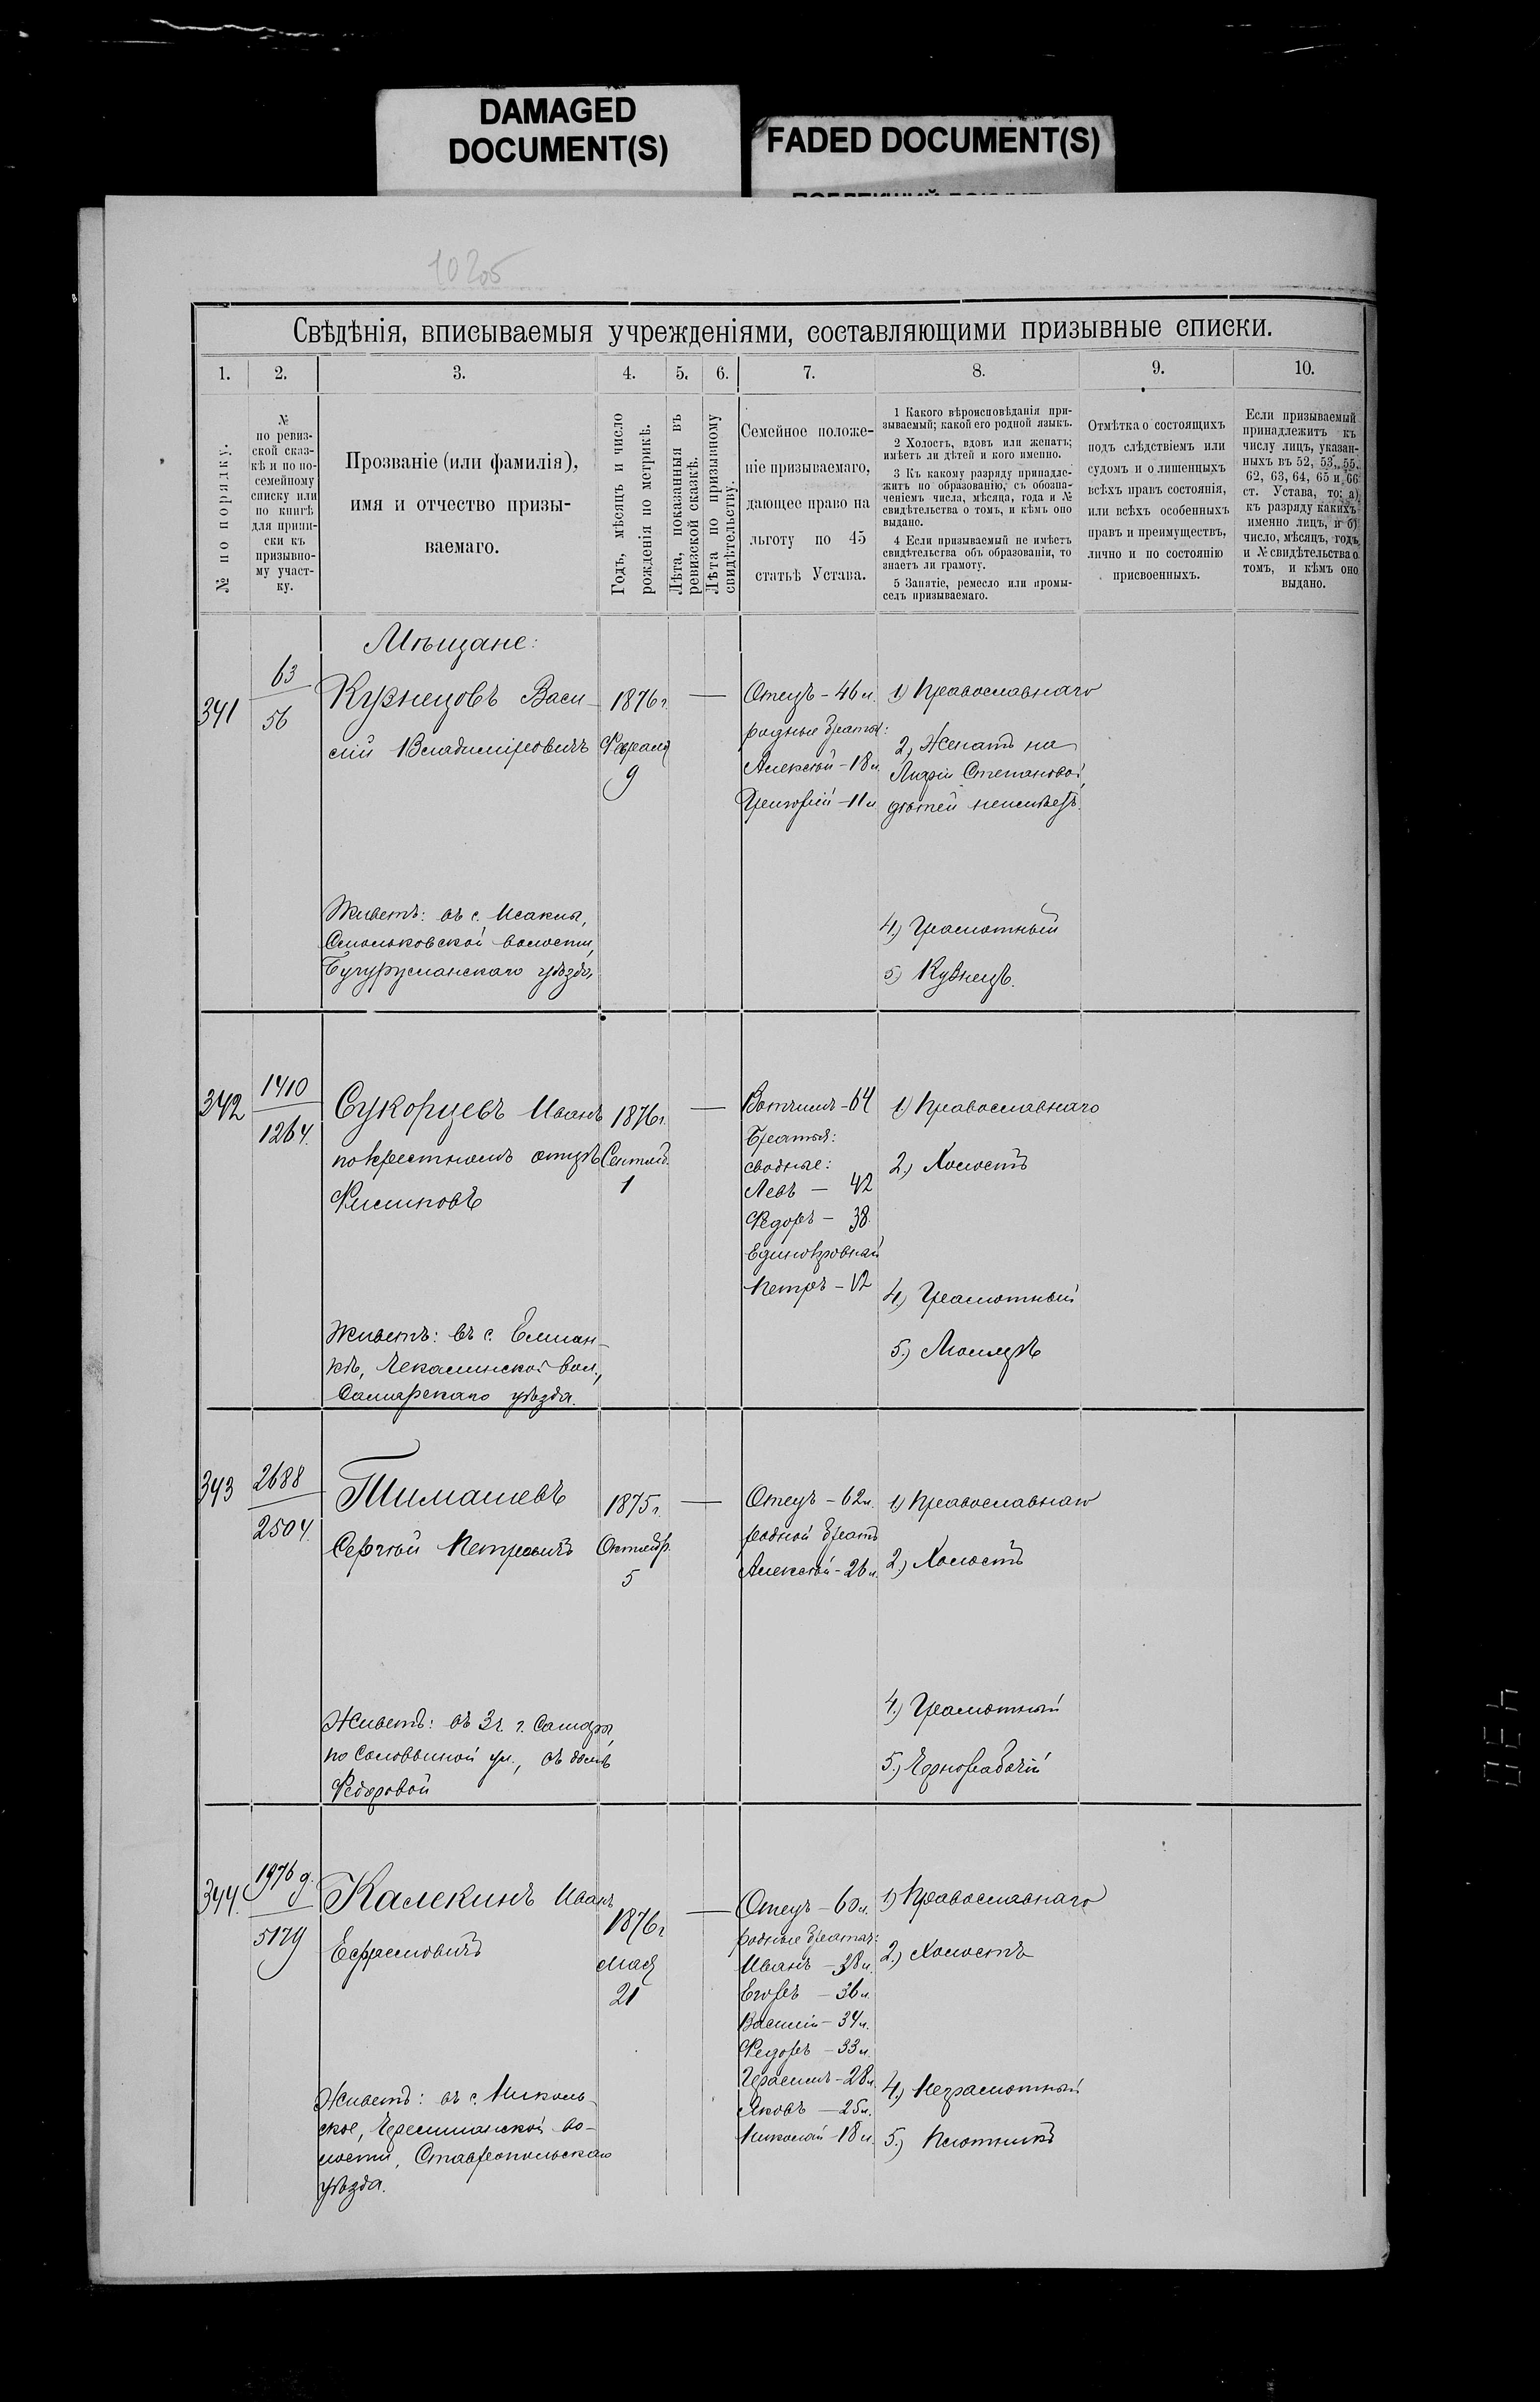 DAMAGED
DOCUMENT(S)
FADED DOCUMENT(S)
10205
Свѣдѣнія, вписываемыя учрежденіями, составляющими призывные списки.
1.
2.
3.
4.
5.
6.
7.
8.
9.
10.
№ по порядку.
№
по ревиз-
ской сказ-
кѣ и по по-
семейному
списку или
по книгѣ
для припи-
ски къ
призывно-
му участ-
ку.
Прозваніе (или фамилія),
имя и отчество призы-
ваемаго.
Годъ, мѣсяцъ и число
рожденія по метрикѣ.
Лѣта, показанныя въ
ревизской сказкѣ.
Лѣта по призывному
свидѣтельству.
Семейное положе-
ніе призываемаго,
дающее право на
льготу по 45
статьѣ Устава.
1 Какого вѣроисповѣданія при-
зываемый; какой его родной языкъ.
2 Холостъ, вдовъ или женатъ;
имѣетъ ли дѣтей и кого именно.
3 Къ какому разряду принадле-
житъ по образованію, съ обозна-
ченіемъ числа, мѣсяца, года и №
свидѣтельства о томъ, и кѣмъ оно
выдано.
4 Если призываемый не имѣетъ
свидѣтельства объ образованіи, то
знаетъ ли грамоту.
5 Занятіе, ремесло или промы-
селъ призываемаго.
Отмѣтка о состоящихъ
подъ слѣдствіемъ или
судомъ и о лишенныхъ
всѣхъ правъ состоянія,
или всѣхъ особенныхъ
правъ и преимуществъ,
лично и по состоянію
присвоенныхъ.
Если призываемый
принадлежитъ къ
числу лицъ, указан-
ныхъ въ 52, 53, 55,
62, 63, 64, 65 и 66
ст. Устава, то: а)
къ разряду какихъ
именно лицъ, и б)
число, мѣсяцъ, годъ
и № свидѣтельства о
томъ, и кѣмъ оно
выдано.
Мѣщане:
341
63
56
Кузнецовъ Васи-
лій Владиміровичъ
1876 г.
Февраля
9
—
Отецъ – 46 л.
родные братья:
Алексѣй – 18 л.
Григорій – 11 л.
1) Православнаго
2) Женатъ на
Лидіи Степановой,
дѣтей неимѣетъ.
Живетъ: въ с. Исаклы,
Смольковской волости,
Бугурусланскаго уѣзда.
4.) Грамотный
5) Кузнецъ.
342
1410
1264.
Сукорцевъ Иванъ
по крестномъ отцѣ
Филиповъ
1876 г.
Сентяб.
1
—
Вотчимъ – 64
Братья:
сводные:
Левъ — 42
Федоръ — 38.
Единокровный
Петръ – 12
1) Православнаго
2.) Холостъ
4.) Грамотный
Живетъ: въ с. Елшан-
кѣ, Чекалинской вол.,
Самарскаго уѣзда.
343
2688
2504.
Тимашевъ
Сергѣй Петровичъ
1875 г.
Октябр.
5
—
Отецъ – 62 л.
родной братъ
Алексѣй – 26 л.
1) Православнаго
2.) Холостъ
Живетъ: въ 3 ч. г. Самары,
по Соловьиной ул., въ домѣ
Федоровой
4.) Грамотный
5.) Чернорабочій
344.
1976 д.
5179
Калекинъ Иванъ
1876 г.
Мая
21
—
Отецъ – 60 л.
родные братья:
Иванъ – 38 л.
Егоръ – 36 л.
Василій – 34 л.
Федоръ – 33 л.
Герасимъ – 28 л.
Яковъ – 25 л.
Николай – 18 л.
1) Православнаго
2.) Холостъ
4.) Неграмотный
5.) Плотникъ
Живетъ: въ с. Николь-
ское, Черемшанской во-
лости, Ставропольскаго
уѣзда.
430